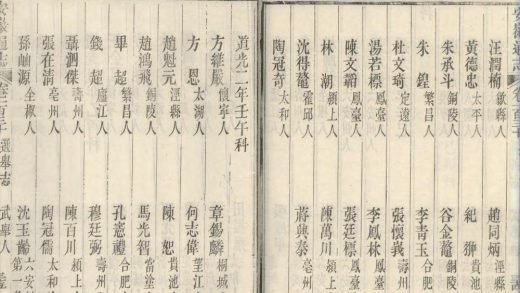 汪潤楠 歙縣人 趙同炳 涇縣
黃德忠 太平人 紀 貴池
朱承斗 銅陵人 谷金鼇 銅陵
朱鍠 繁昌人 李青玉 合肥
杜文琦 定遠人 張懷義 壽州
湯若標 鳳臺人 李鳳林 鳳臺
陳文 鳳臺人 張廷標 鳳臺
林湖 潁上人 陳萬川 潁上
沈得鼇 霍邱人 蔣興泰 亳州
陶冠奇 太和人
道光二年壬午科
方維嚴 懷寧人 章錫麟 桐城
方恩 太湖人 何志偉 望江
趙魁元 涇縣人 陳恕 貴池
趙鴻飛 銅陵人 馬先智 當塗
畢超 繁昌人 孔憲禮 合肥
錢超 廬江人 穆廷弼 壽州
聶泗傑 壽州人 陳百川 潁上
張在清 亳州人 陶冠儒 太和
孫岫源 全椒人 沈玉齡 六安 第一
安徽通志 選舉志 武舉人